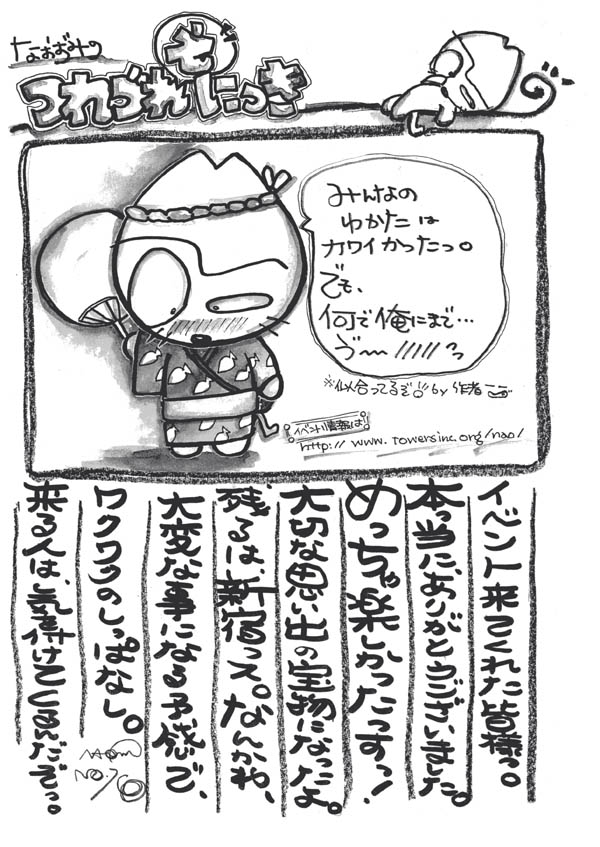 なおおみの
つれづれ
にっき
みんなの
ゆかたは
カワイかったっ。
でも、
何で俺にまで…
う〜/////っ
※似合ってるぞ!! by 作者
イベント情報は!
http://www.towersinc.org/nao/
イベント来てくれた皆様っ。
本っ当に、ありがとうございました。
めっちゃ楽しかったっすっ!
大切な思い出の宝物になったよ。
残るは、新宿っス。なんかね、
大変な事になる予感で、
ワクワクのしっぱなし。
来る人は、気を付けてくるんだぞっ。